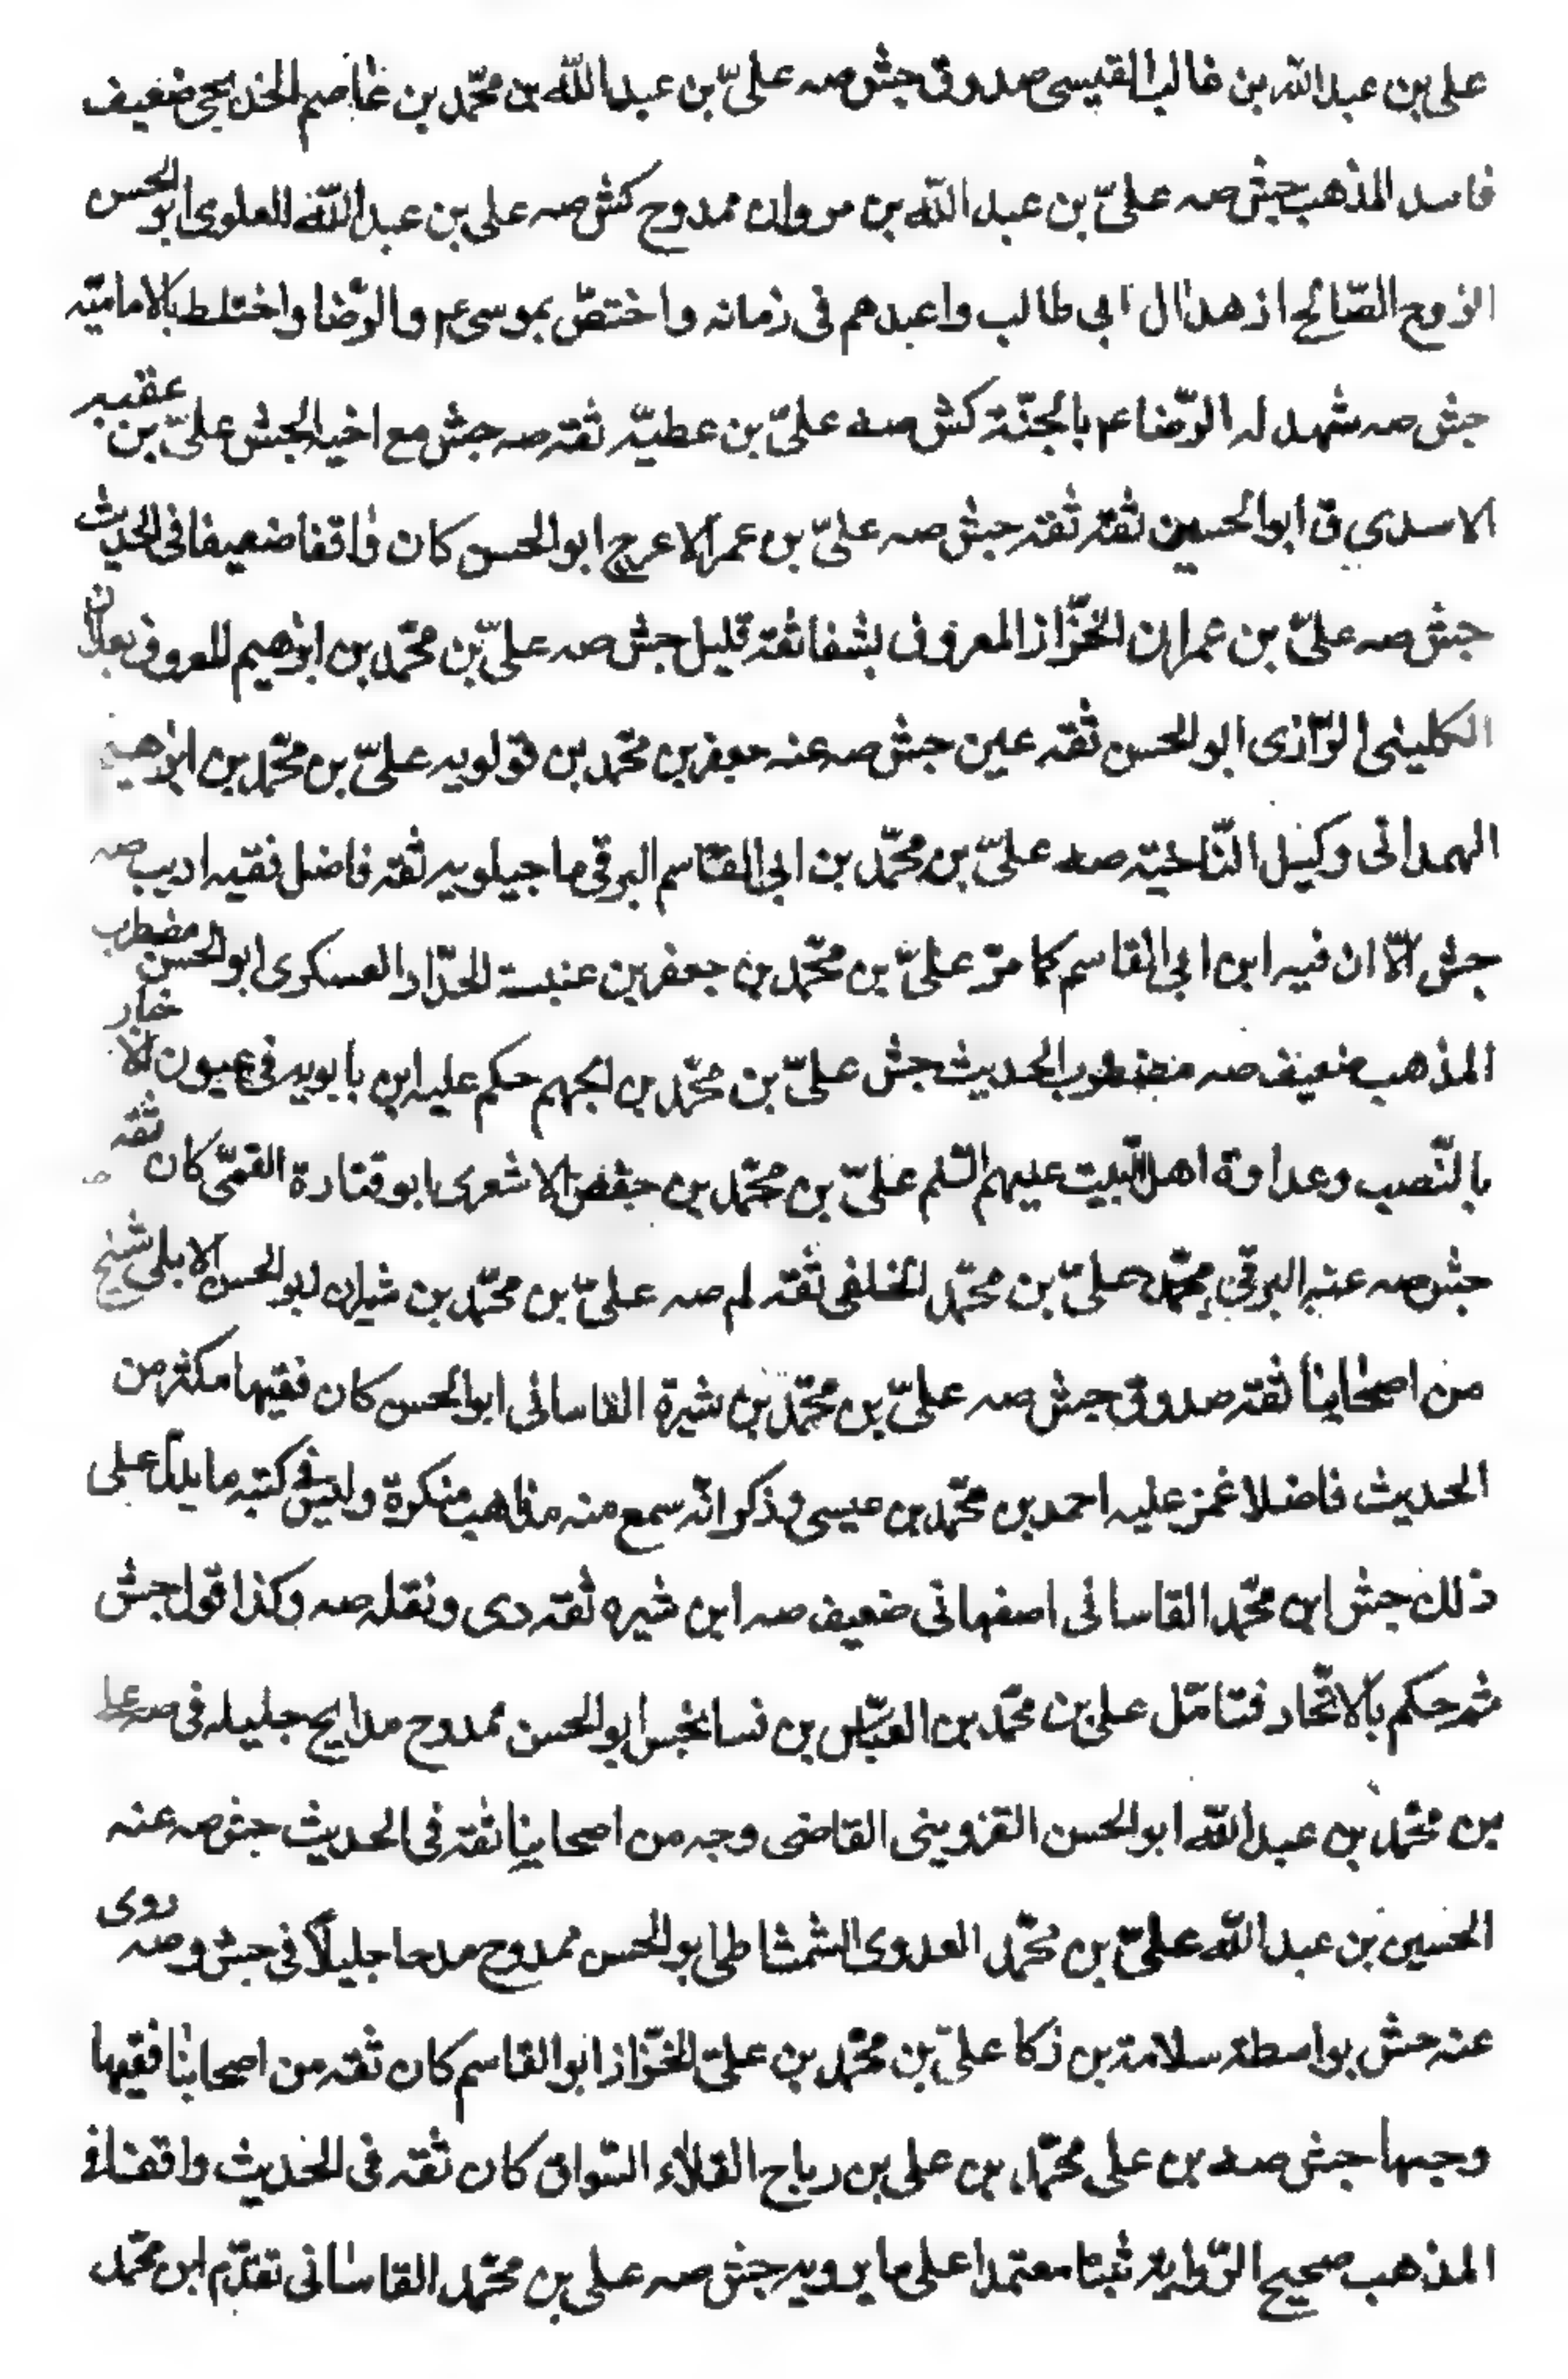 علي بن عبد الله بن غالب القيسي صدوق جش صه عليّ بن عبد اللّه بن محمّد بن عاصم الخديجي ضعيف
فاسد المذهب جش صه عليّ بن عبد اللّه بن مروان ممدوح كش صه علي بن عبد اللّه العلوي ابو الحسن
الزوج الصّالح ازهد ال ابي طالب واعبدهم في زمانه واختصّ بموسى ع م والرّضا واختلط بالاماميّة
جش صه شهد له الرّضا ع م بالجنّة كش صه عليّ بن عطيّة ثقة صه جش مع اخيه الجش عليّ بن عقبه
الاسدي ق ابو الحسين ثقة ثقة جش صه عليّ بن عمر الاعرج ابو الحسن كان واقفا ضعيفا في الحديث
جش صه عليّ بن عمران الخزّاز المعروف بشفا ثقة قليل جش صه عليّ بن محمّد بن ابرهيم المعروف بعلّان
الكليني الرّازي ابو الحسن ثقه عين جش صه عنه جعفر بن محمّد بن قولويه عليّ بن محمّد بن ابرهيم
الهمداني وكيل النّاحية صه عليّ بن محمّد بن ابي القاسم البرقي ماجيلويه ثقة فاضل فقيه اديب صه
جش الّا ان فيه ابن ابي القاسم كما مرّ عليّ بن محمّد بن جعفر بن عنبسة الحدّاد العسكرى ابو الحسن مضطرب
المذهب ضعيف صه مضطرب الحديث جش عليّ بن محمّد بن الجهم حكم عليه ابن بابويه في عيون الاخبار
بالنّصب وعداوة اهل البيت عليهم السّلم عليّ بن محمّد بن حفص الاشعرى ابو قتادة القمّي كان ثقه
جش صه عنه البرقي محمّد عليّ بن محمّد الخلفى ثقة لم صه عليّ بن محمّد بن شيران ابو الحسن الابلى شيخ
من اصحابنا ثقة صدوق جش صه عليّ بن محمّد بن شيرة القاساني ابو الحسن كان فقيها مكثر من
الحديث فاضلا غمز عليه احمد بن محمّد بن عيسى وذكر انّه سمع منه مذاهب منكرة وليس في كتبه ما يدلّ على
ذلك جش ابن محمّد القاساني اصفهاني ضعيف صه ابن شيره ثقة دى ونقله صه وكذا قول جش
ثم حكم بالاتّحاد فتامّل علي بن محمّد بن العبّاس بن فسانجس ابو الحسن ممدوح مدايح جليله في صه علي
بن محمّد بن عبد اللّه ابو الحسن القزويني القاضي وجه من اصحابنا ثقة في الحديث جش صه عنه
الحسين بن عبد اللّه عليّ بن محمّد العدوى الشمشاطي ابو الحسن ممدوح مدحا جليلاً في جش وصه روى
عنه جش بواسطة سلامة بن ذكا عليّ بن محمّد بن عليّ الخزّاز ابو القاسم كان ثقه من اصحابنا فقيها
وجيها جش صه بن علي محمّد بن علي بن رباح القلاء السّواق كان ثقه في الحديث واقفا في
المذهب صحيح الرّواية ثبتا معتمدا على ما يرويه جش صه علي بن محمّد القاساني تقدّم ابن محمّد